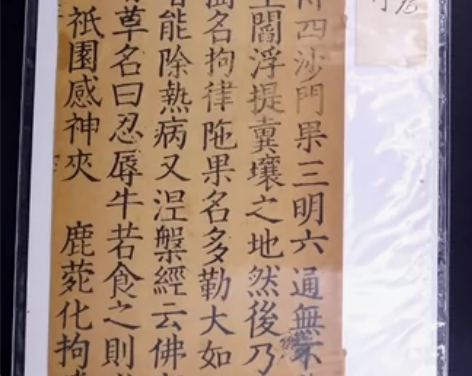 四沙門果三明六通無不
閻浮提糞壤之地然後乃
名拘律陁果名多勒大如
能除熱病又涅槃經云佛
草名曰忍辱牛若食之則
祇園感神夾　鹿菀化拘